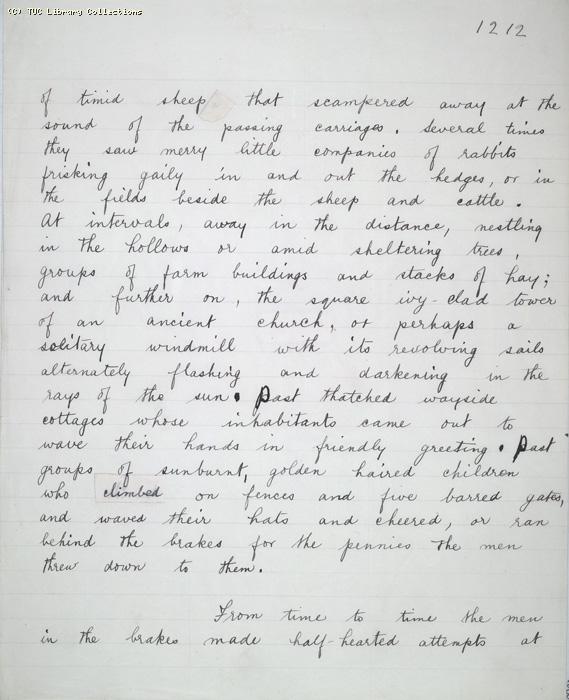 (C) TUC Library Collections
1212
of timid sheep that scampered away at the
sound of the passing carriages. Several times
they saw merry little companies of rabbits
frisking gaily in and out the hedges, or in
the fields beside the sheep and cattle.
At intervals, away in the distance, nestling
in the hollows or amid sheltering trees,
groups of farm buildings and stacks of hay;
and further on, the square ivy-clad tower
of an ancient church, or perhaps a
solitary windmill with its revolving sails
alternately flashing and darkening in the
rays of the sun. Past thatched wayside
cottages whose inhabitants came out to
wave their hands in friendly greeting. Past
groups of sunburnt, golden haired children
who climbed on fences and five barred gates,
and waved their hats and cheered, or ran
behind the brakes for the pennies the men
threw down to them.
From time to time the men
in the brakes made half-hearted attempts at